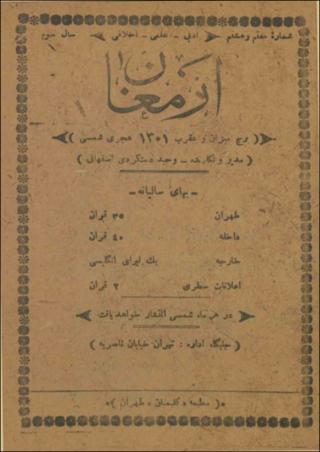 شمارهٔ هفتم و هشتم ادبی - علمی - اخلاقی سال سوم
ارمغان
( برج میزان و عقرب ۱۳۰۱ هجری شمسی )
( مدیر و نگارنده - وحید دستگردی اصفهانی )
- بهای سالیانه -
طهران ۳۵ قران
داخله ۴۰ قران
خارجه یك لیرای انگلیسی
اعلانات سطری ۲ قران
در هر ماه شمسی انتشار خواهد یافت
( جایگاه اداره : تهران خیابان ناصریه )
«( مطبعه » کلیمیان » طهران )»